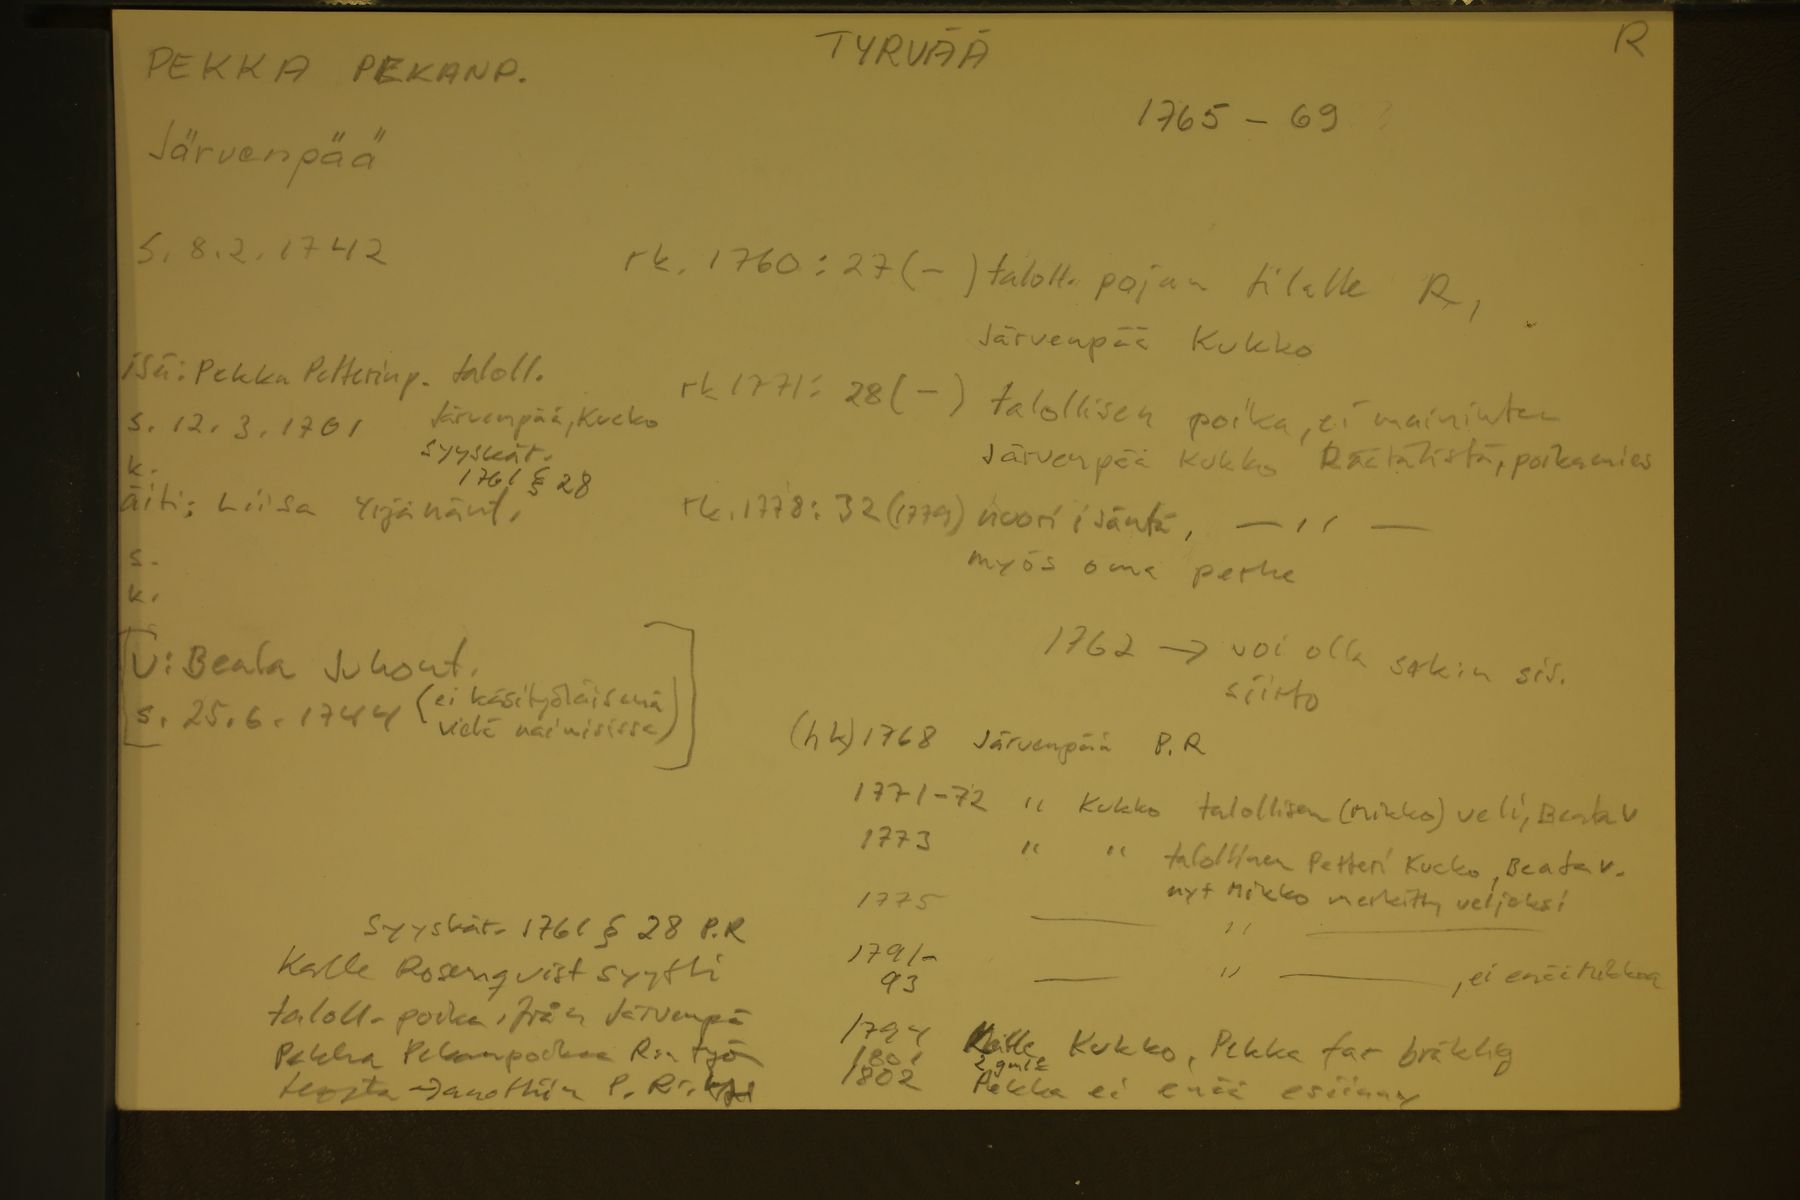 TYRVÄÄ
R
PEKKA PEKANP.
1765 - 69
Järvenpää
s. 8.2.1742
rk. 1760: 27 (-) taloll. pojan tilalle R,
Järvenpää Kukko
isä: Pekka Petterinp. taloll.
s. 12.3.1701 Järvenpää, Kucko
syyskät.
1761 § 28
k.
äiti: Liisa Yrjänänt.
s.
k.
rk 1771: 28 (-) talollisen poika, ei mainintaa
Järvenpää Kukko Räätälistä, poikamies
rk. 1778: 32 (1779) nuori isäntä, — " —
myös oma perhe
[v: Beata Juhont.
s. 25.6.1744 (ei käsityöläisenä
vielä naimisissa)]
1762 → voi olla sekin sis.
siirto
(hk) 1768 Järvenpää P.R
1771-72 " Kukko talollisen (Mikko) veli, Beata v
1773 " " talollinen Petteri Kucko, Beata v.
nyt Mikko merkitty veljeksi
1775 — " —
1791-
93 — " —, ei enää Mikkoa
1794 Kalle Kukko, Pekka far bräklig
1801
1802 Pekka ei enää esiinny
Syyskät. 1761 § 28 P.R
Kalle Rosenqvist syytti
taloll. poika, från Järvenpä
Pekka Pekanpoikaa R:n työ
→ P. R: